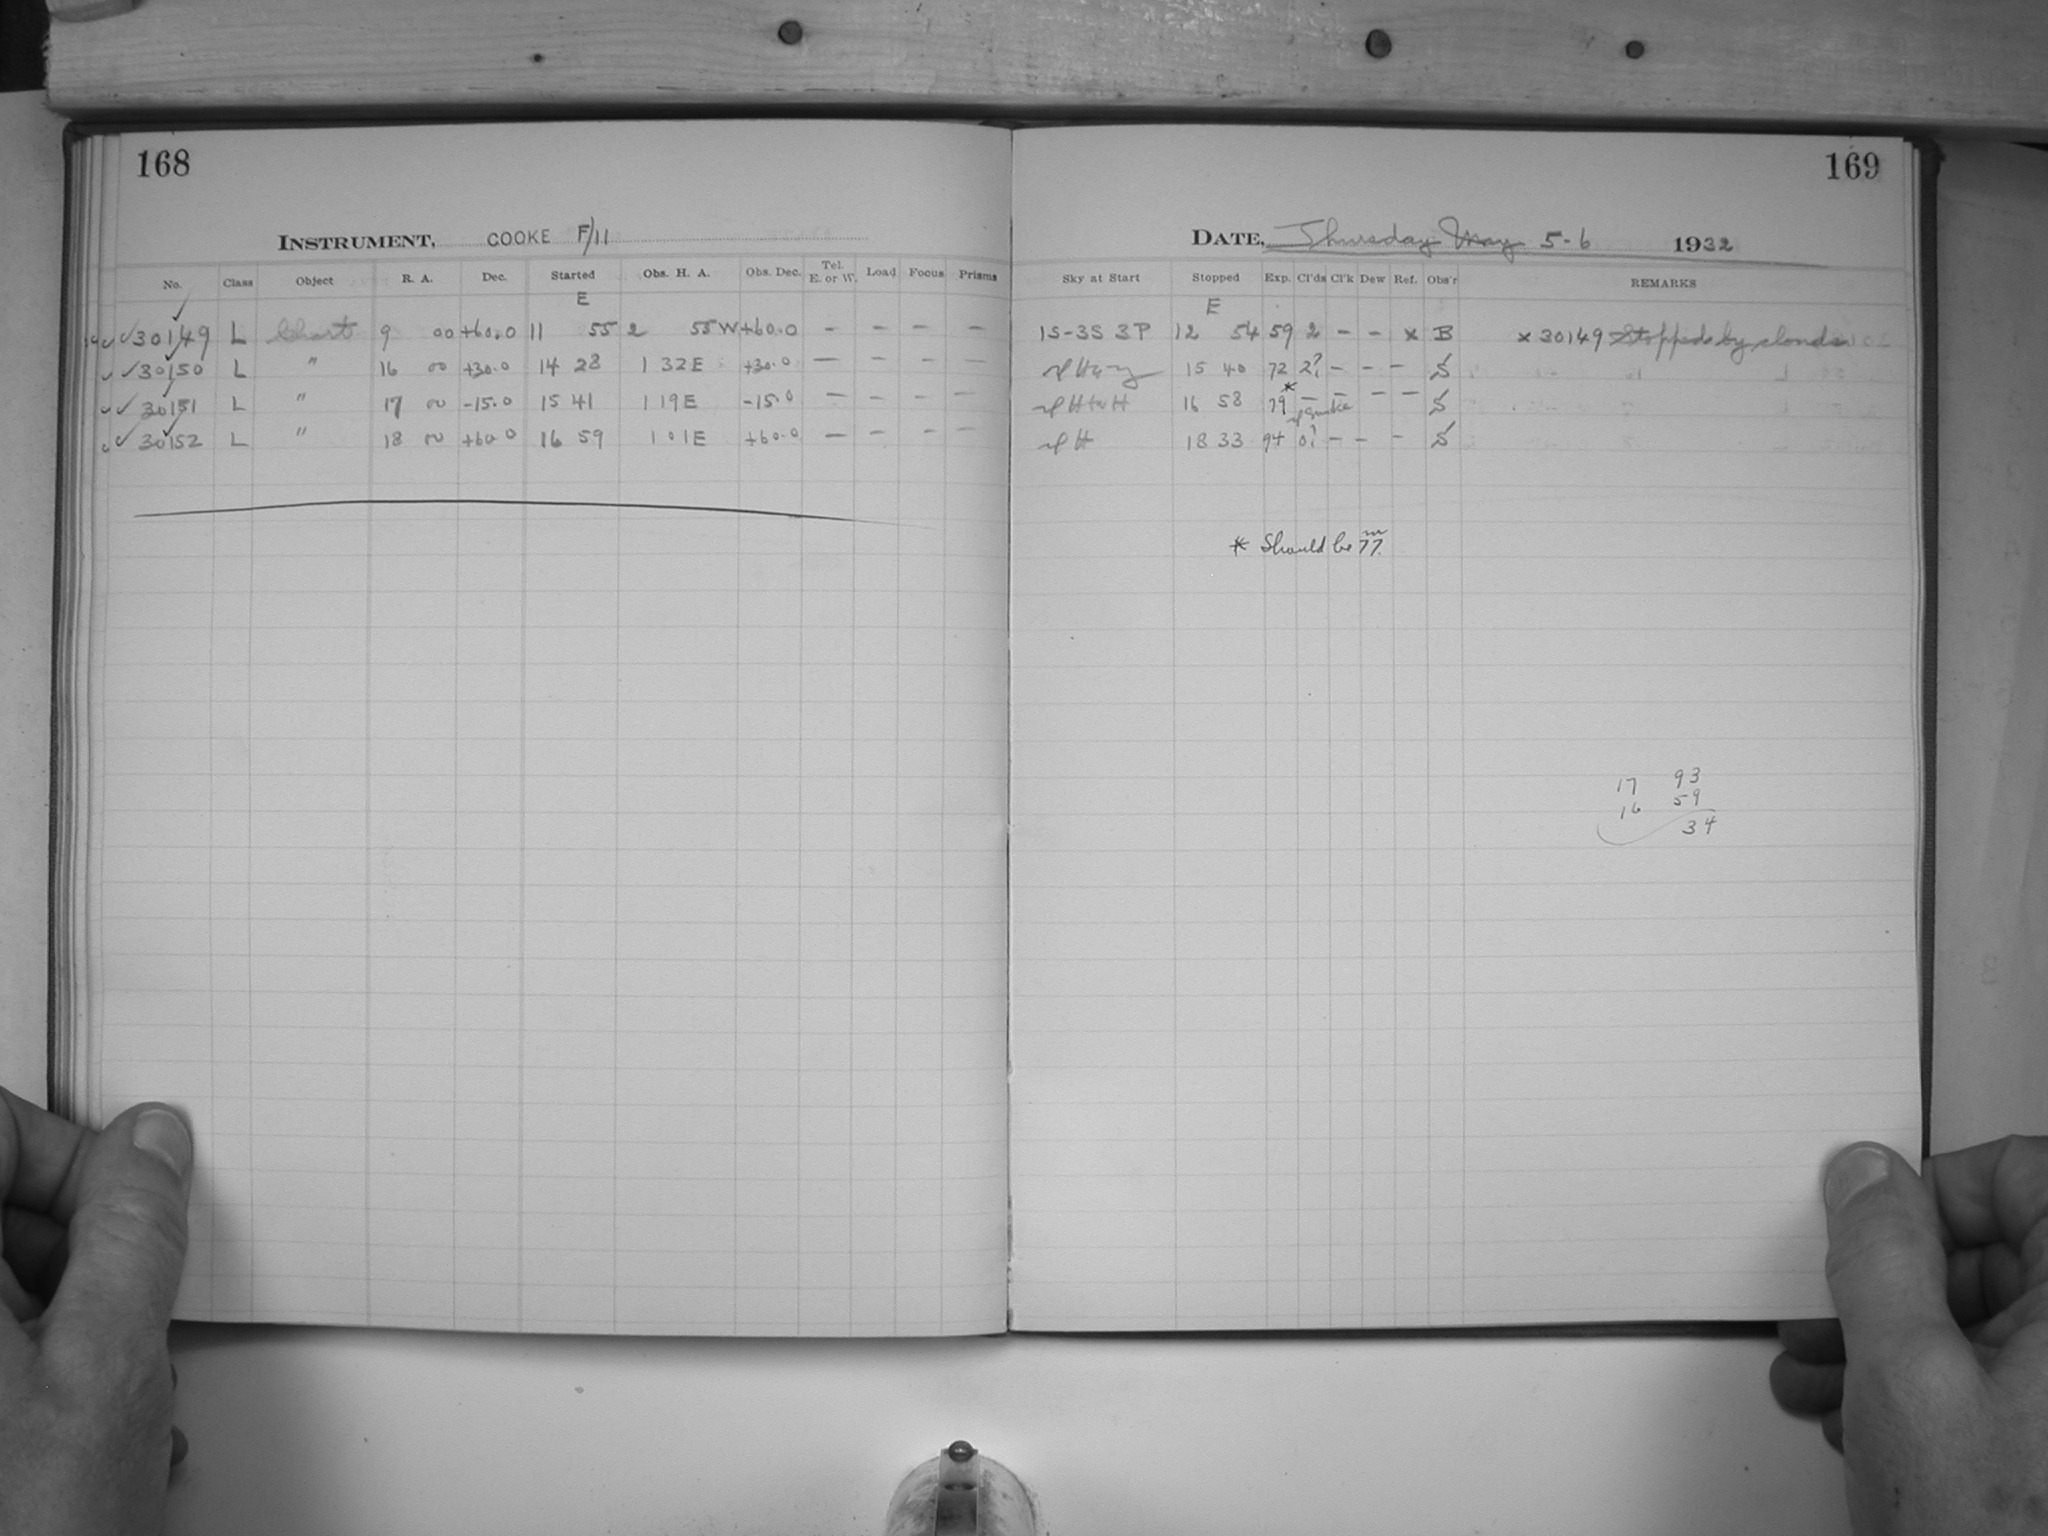 168
INSTRUMENT, COOKE F/11
No. Class Object R. A. Dec. Started Obs. H. A. Obs. Dec. Tel. E. or W. Load Focus Prisms
E
30149 L Chart 9 00 +60.0 11 55 2 55 W +60.0 - - - -
30150 L " 16 00 +30.0 14 28 1 32 E +30.0 - - - -
30151 L " 17 00 -15.0 15 41 1 19 E -15.0 - - - -
30152 L " 18 00 +60.0 16 59 1 01 E +60.0 - - - -
169
DATE, Thursday May 5-6 1932
Sky at Start Stopped Exp. Cl'ds Cl'k Dew Ref. Obs'r REMARKS
E
1S-3S 3P 12 54 59 2 - - x B x 30149 Stopped by clouds
15 40 72 2? - - - S
16 58 79 * - - - - S
H 18 33 94 0? - - - S
* Should be 77m
17 93
16 59
34